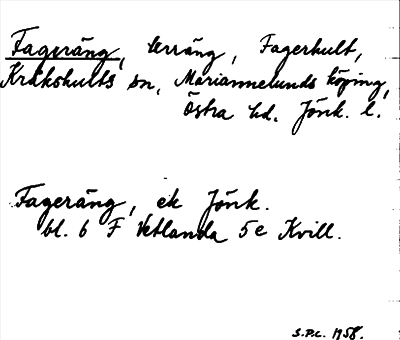 Fageräng, terräng, Fagerhult,
Kråkshults sn, Mariannelunds köping,
Östra hd. Jönk. l.
Fageräng, ek Jönk.
bl. 6 F Vetlanda 5e Kvill.
S.P.L. 1958.